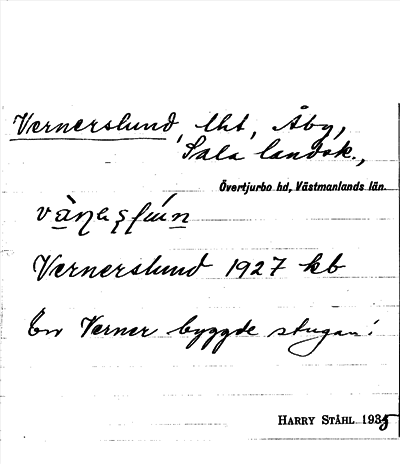 Vernerslund, lht, Åby,
Sala landsk.,
Övertjurbo hd, Västmanlands län.
Vernerslund 1927 kb
En Verner byggde stugan.
HARRY STÅHL 1935